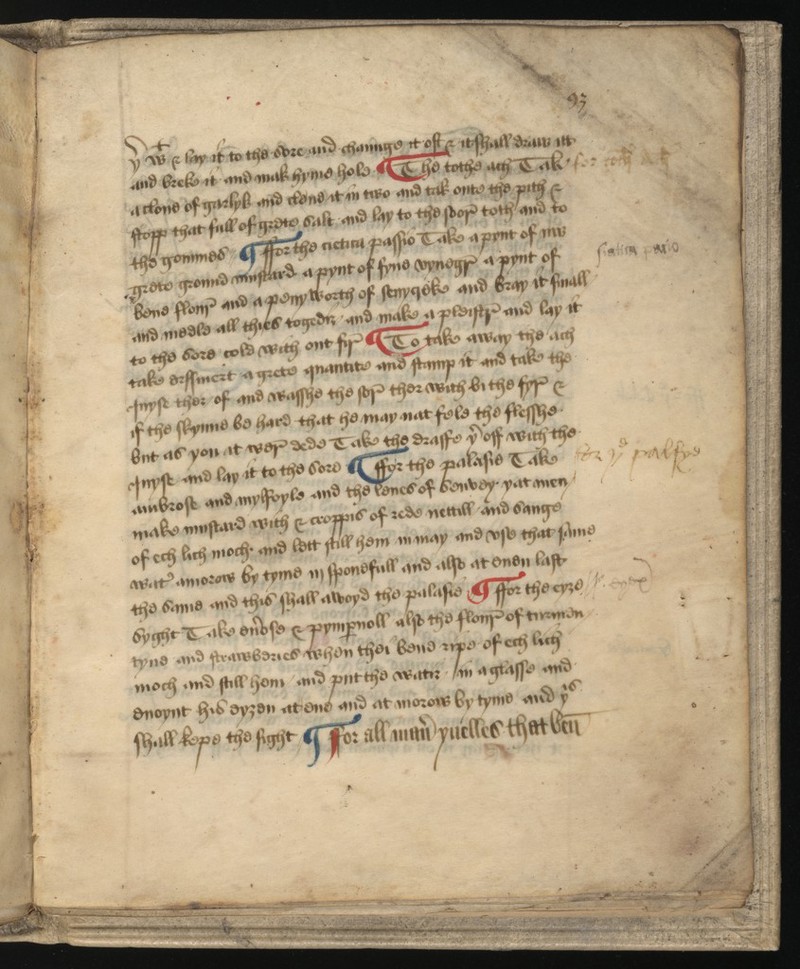 93
yͭ wͭ & lay it to the sore and chaunge it oft & it shall draw itt
and breke it and mak hyme hole ¶ The tothe ach Tak
for toth ach
a clone of garlyk and clene it in two and tak oute the pith &
stopp that full of grete salt and lay to the soor toth and to
the gommes ¶ ffor the cietica passio Take a pynt of
siatica pasio
grete ground mustard a pynt of fyne vynegr a pynt of
bene flour and a penyworth of and bray it small
and medle all thies togedr and make a pleistr and lay it
to the sore cold with out fyr ¶ To take away the ach
take a grete quantite and stamp it and take the
Jnyse ther of and wasshe the sor ther with bi the fyr &
if the skynne be hard that he may nat fele the flesshe
but as you at wer dede Take the drasse yͬ off with the
Jnyse and lay it to the sore ¶ ffor the palasie Take
for yͤ palsye
ambrose and mylfoyle and the leues of senvey yat men
make mustard with & croppis of rede nettill and sauge
of ech lich moch and lett still hem in may and vse that same
watr amorow by tyme iij sponefull and also at euen last
the same and this shall awoyd the palasie ¶ ffor the eyze
syght Take & pympernoll also the flour of
tyne and strawberies when thei bene ripe of ech lich
moch and still hem and put the watr in a glasse and
enoynt his eyzen at eue and at morow by tyme and yͭ
shall kepe the sight ¶ For all man yuelles that ben